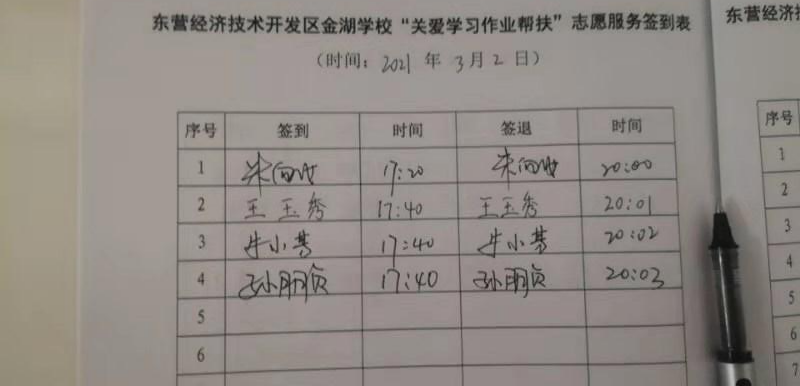 东营经济技术开发区金湖学校“关爱学习作业帮扶”志愿服务签到表
（时间：2021 年 3 月 2 日）
序号 签到 时间 签退 时间
1 17:20 20:00
2 王玉秀 17:40 王玉秀 20:01
3 牛小 17:40 牛小 20:02
4 孙朋贞 17:40 孙朋贞 20:03
5
6
东营经济
序号
1
2
3
4
5
6
7